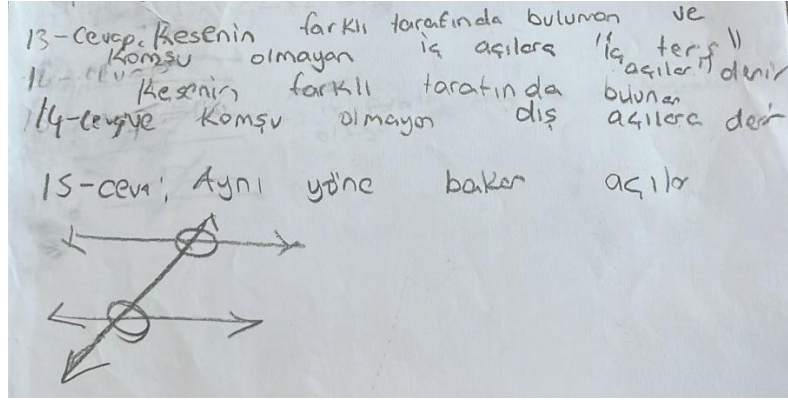 13-Cevap: Kesenin farklı tarafında bulunan ve
Komşu olmayan iç açılara "iç ters
açılar" denir
Kesenin farklı tarafında bulunan
14-Cevap ve Komşu olmayan dış açılara denir
15-ceva; Aynı yöne bakan açılar